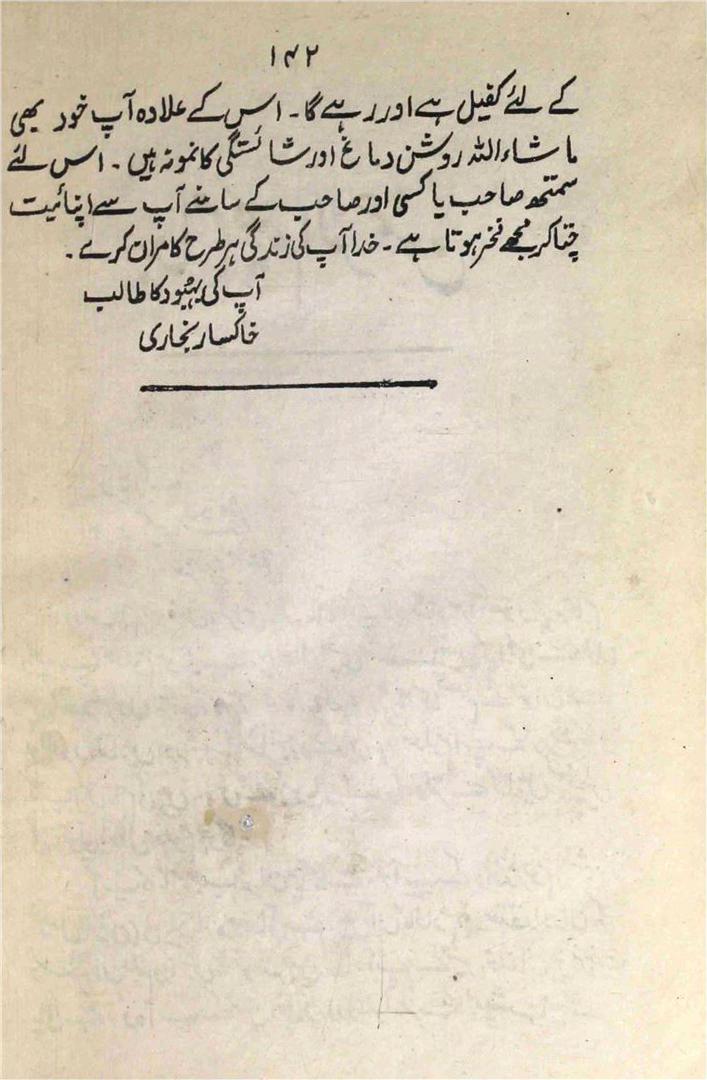 ۱۴۲
کے لئے کفیل ہے اور رہے گا۔ اس کے علاوہ آپ خود بھی
ماشاءاللہ روشن دماغ اور شائستگی کا نمونہ ہیں۔ اس لئے
سمتھ صاحب یا کسی اور صاحب کے سامنے آپ سے اپنائیت
جتا کر مجھے فخر ہوتا ہے۔ خدا آپ کی زندگی ہر طرح کامران کرے۔
آپ کی بہبود کا طالب
خاکسار بخاری